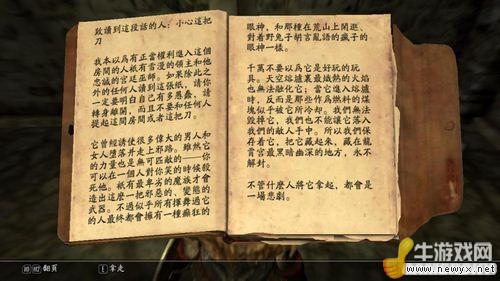 致讀到這段話的人:小心這把
刀
我本以為有正當權利進入這個
房間的人衹有雪漫的領主和他
忠誠的宮廷巫師。如果除此之
外的任何人讀到這張紙,請你
一定要明白自己有多愚蠢,請
轉身離開,而且不要和任何人
提起這間房間或者這把刀。
它曾經誘使很多偉大的男人和
女人墮落并走上邪路。雖然它
的力量也是無可匹敵的——你
可以在一個人對你笑的時候殺
死他。衹有最卑劣的魔族才會
造出這麽一把邪惡的、變態的
武器。不過似乎所有揮舞過它
的人最終都會擁有一種癲狂的
眼神,和那種在荒山上閑逛、
對着野兔子胡言亂語的瘋子的
眼神一樣。
千萬不要以為它是好玩的玩
具。天空熔爐裏最熾熱的火焰
也無法融化它;當它進入熔爐
時,反而是那些作為燃料的煤
塊似乎被它所冷却。我們無法
毀掉它,我們也不能讓它落入
我們的敵人手中。所以我們保
存着它,把它藏起來,藏在龍
霄宮最黑暗幽深的地方,永不
解封。
不管什麽人將它拿起,都會是
一場悲劇。
翻頁
E 拿走
牛游戏网
www.newyx.net